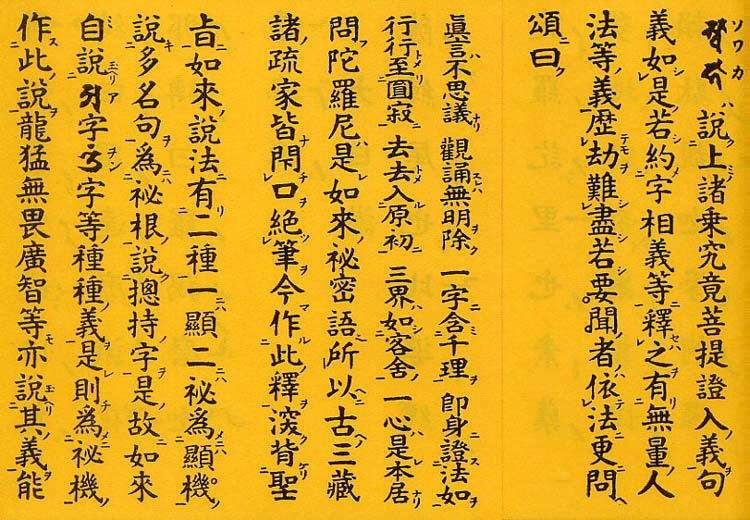 ソワカ
𑖭𑖿𑖪𑖯𑖮𑖯説上諸乘究竟菩提證入義句
義如是若約字相義等釋之有無量人
法等義歴劫難盡若要聞者依法更問
頌曰
眞言不思議 觀誦無明除 一字含千理 即身證法如
行行至圓寂 去去入原初 三界如客舎 一心是本居
問陀羅尼是如來祕密語所以古三藏
諸疏家皆閇口絶筆今作此釋深背聖
旨如來説法有二種一顯二祕爲顯機
説多名句爲祕根説揔持字是故如來
自説𑖀字𑖌𑖼字等種種義是則爲祕機
作此説龍猛無畏廣智等亦説其義能